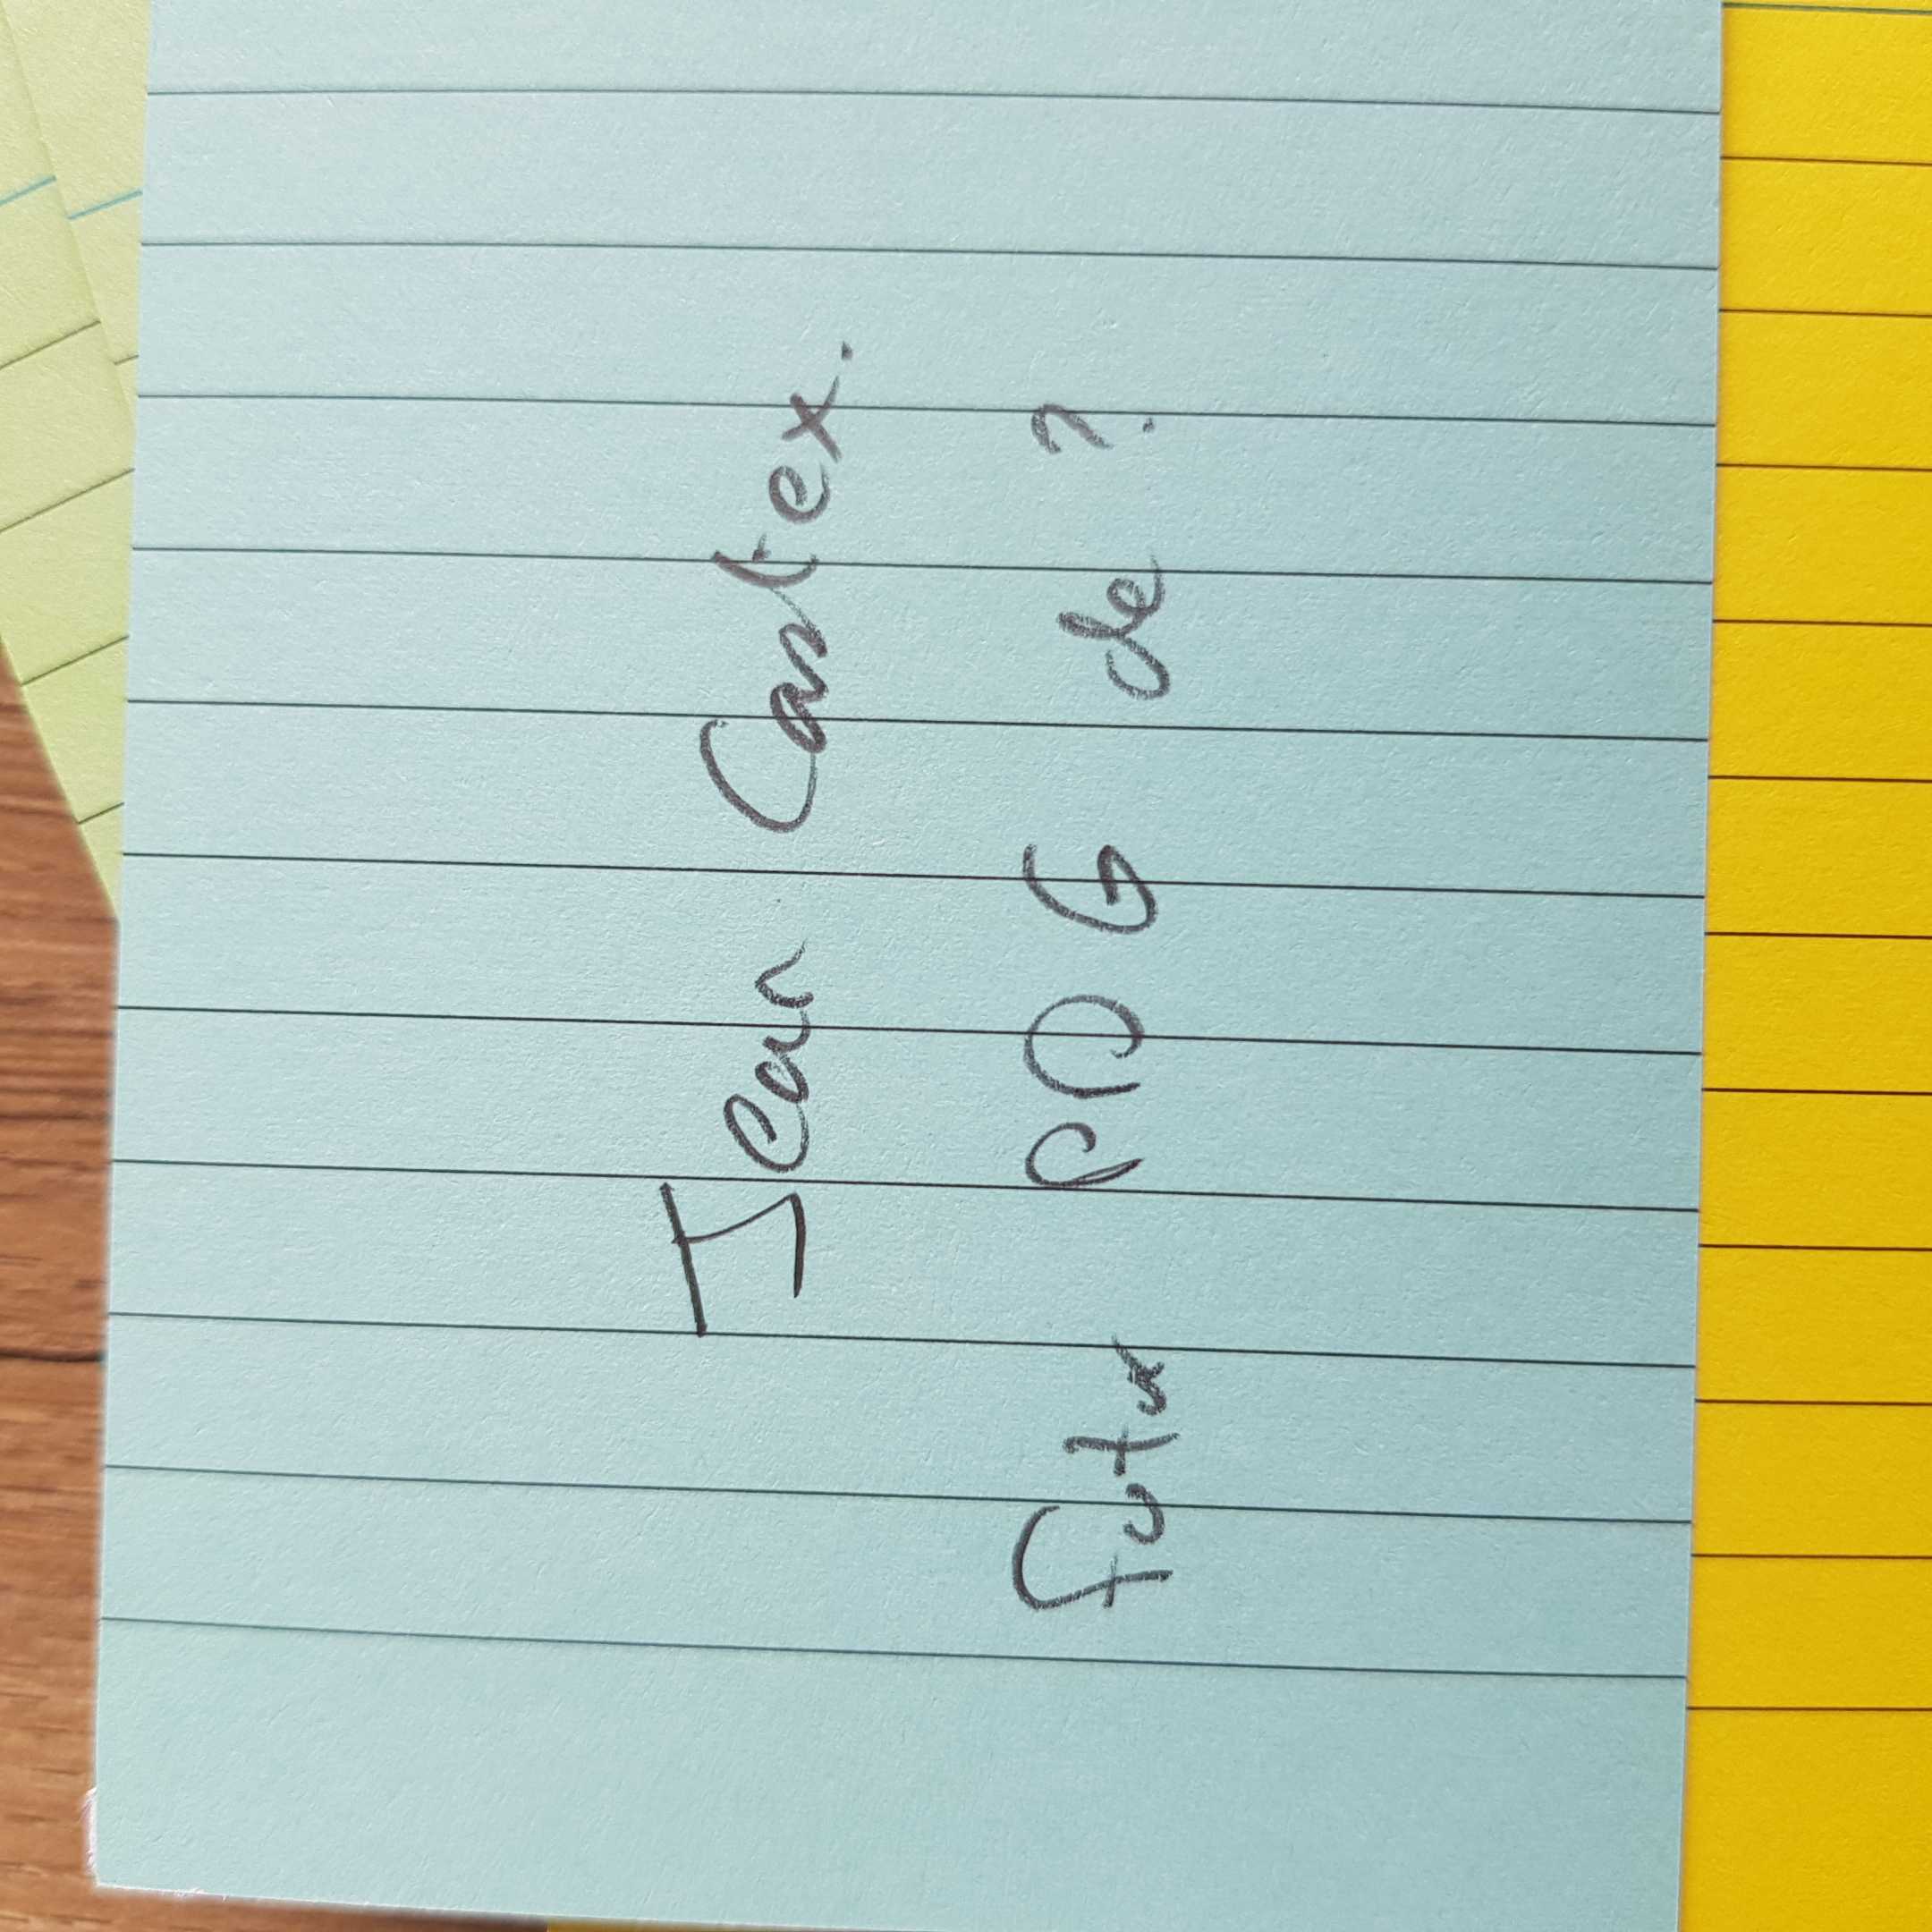 Jean Castex.
futur PDG de ?